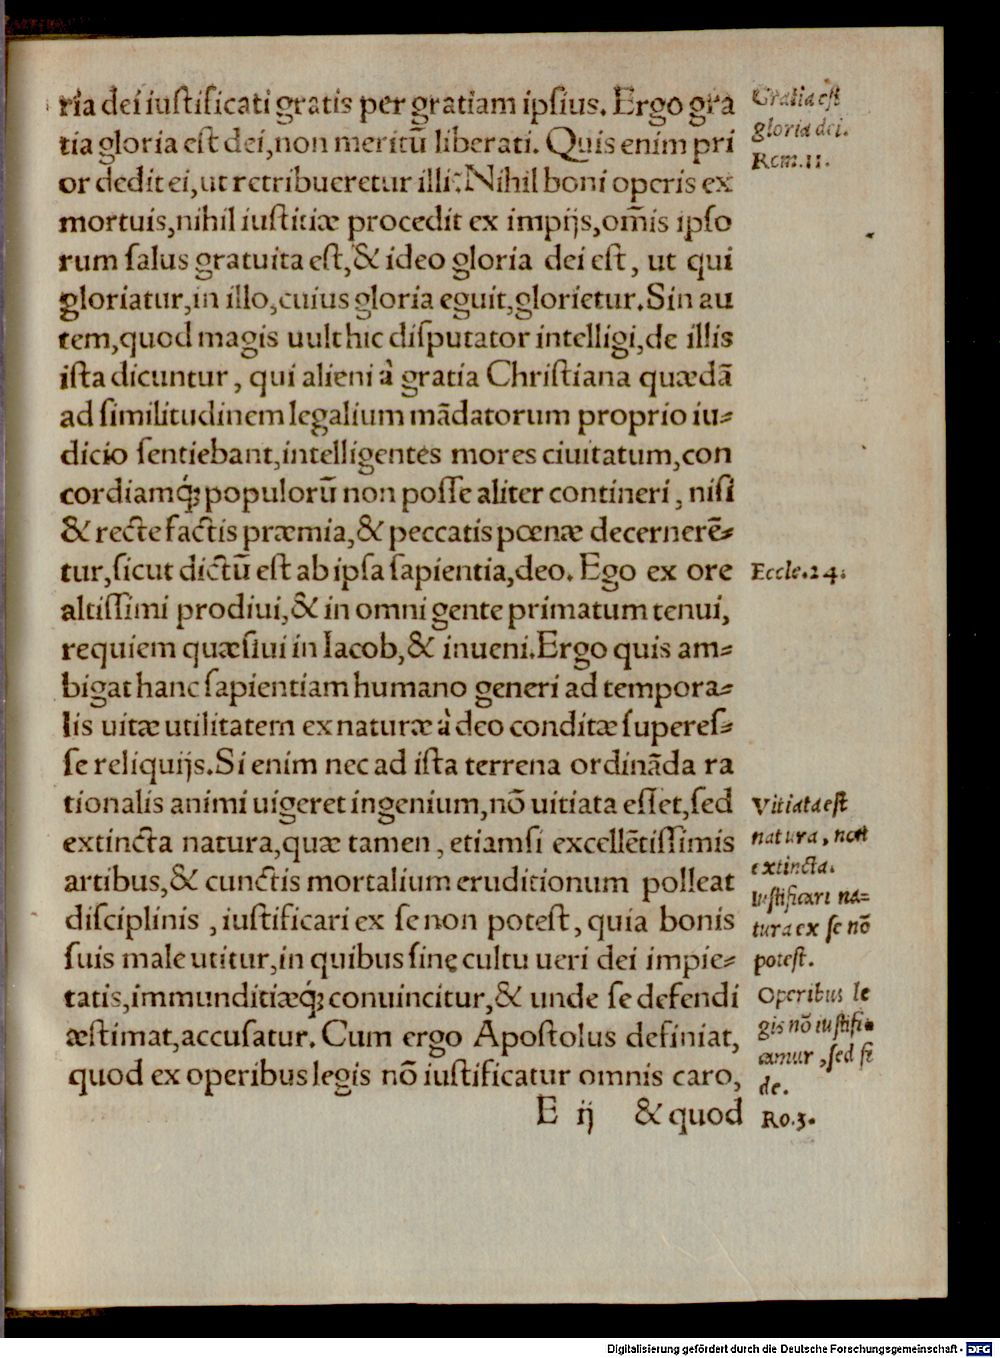 ria dei iuſtificati gratis per gratiam ipſius. Ergo gra
tia gloria eſt dei, non meritū liberati. Quis enim pri
or dedit ei, ut retribueretur illi? Nihil boni operis ex
mortuis, nihil iuſtitiæ procedit ex impijs, om̃is ipſo
rum ſalus gratuita eſt, & ideo gloria dei eſt, ut qui
gloriatur, in illo, cuius gloria eguit, glorietur. Sin au
tem, quod magis uult hic diſputator intelligi, de illis
iſta dicuntur, qui alieni à gratia Chriſtiana quædā
ad ſimilitudinem legalium mādatorum proprio iu⸗
dicio ſentiebant, intelligentes mores ciuitatum, con
cordiamq́ꝫ populorū non poſſe aliter contineri, niſi
& recte factis præmia, & peccatis pœnæ decernerē⸗
tur, ſicut dictū eſt ab ipſa ſapientia, deo. Ego ex ore
altiſſimi prodiui, & in omni gente primatum tenui,
requiem quæſiui in Iacob, & inueni. Ergo quis am⸗
bigat hanc ſapientiam humano generi ad tempora⸗
lis uitæ utilitatem ex naturæ à deo conditæ ſupereſ⸗
ſe reliquijs. Si enim nec ad iſta terrena ordināda ra
tionalis animi uigeret ingenium, nō uitiata eſſet, ſed
extincta natura, quæ tamen, etiamſi excellētiſſimis
artibus, & cunctis mortalium eruditionum polleat
diſciplinis, iuſtificari ex ſe non poteſt, quia bonis
ſuis male utitur, in quibus ſine cultu ueri dei impie⸗
tatis, immunditiæq́ꝫ conuincitur, & unde ſe defendi
æſtimat, accuſatur. Cum ergo Apoſtolus definiat,
quod ex operibus legis nō iuſtificatur omnis caro,
E ij & quod
Gratia eſt
gloria dei.
Rom.11.
Eccle.24.
Vitiata eſt
natura, non
extincta.
Iuſtificari na⸗
tura ex ſe nō
poteſt.
Operibus le
gis nō iuſtifi⸗
camur, ſed fi
de.
Ro.3.
Digitalisierung gefördert durch die Deutsche Forschungsgemeinschaft - DFG